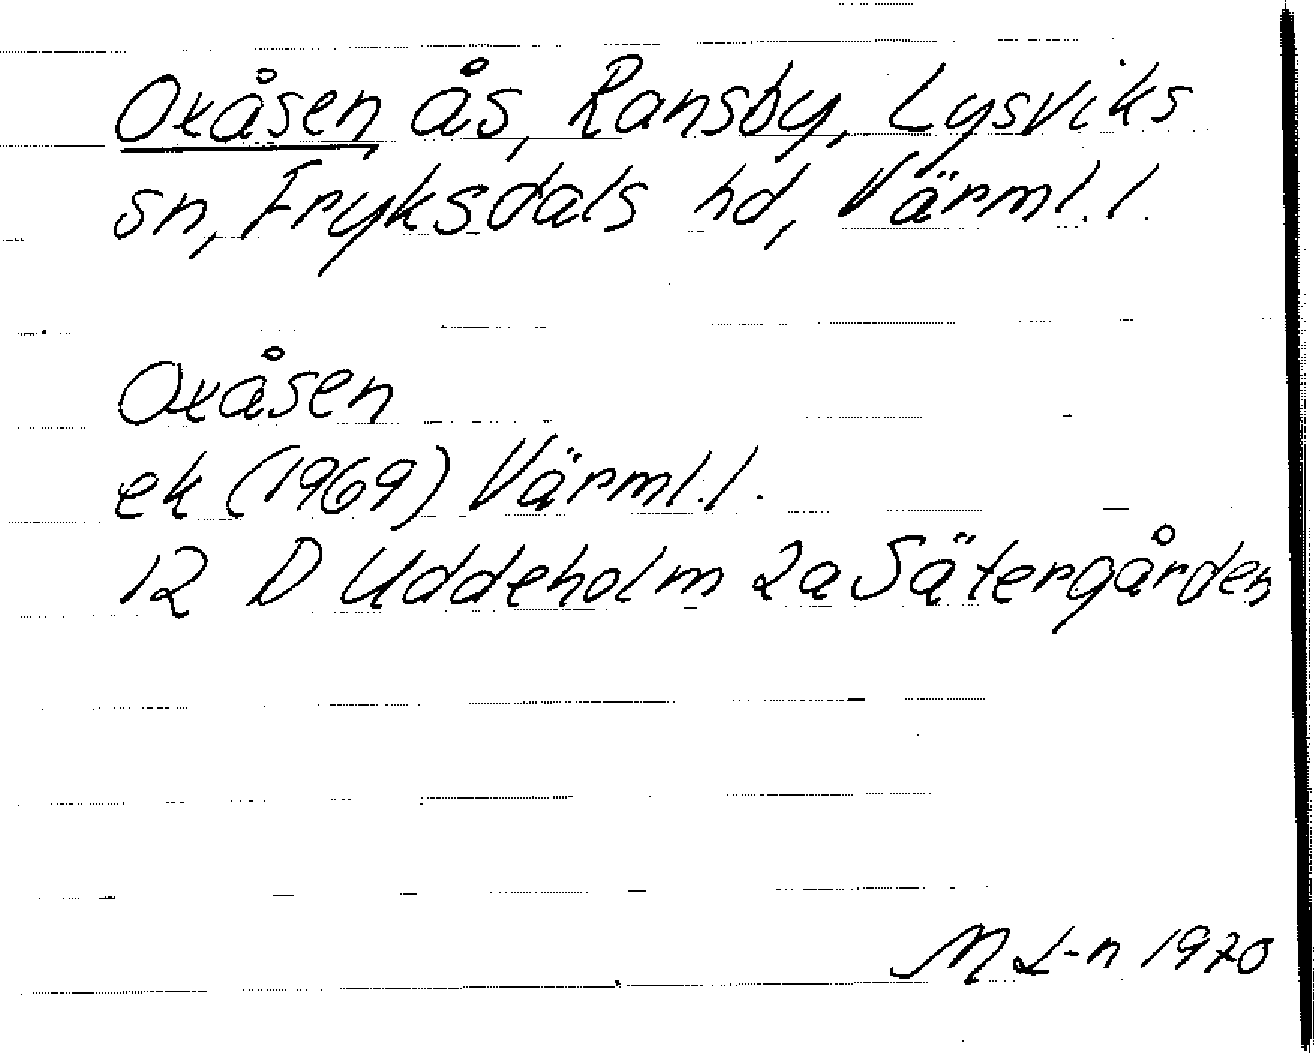 Oxåsen ås, Ransby, Lysviks
sn, Fryksdals hd, Värml. l.
Oxåsen
ek (1969) Värml. l.
12 D Uddeholm 2a Sätergården
M L-n 1970